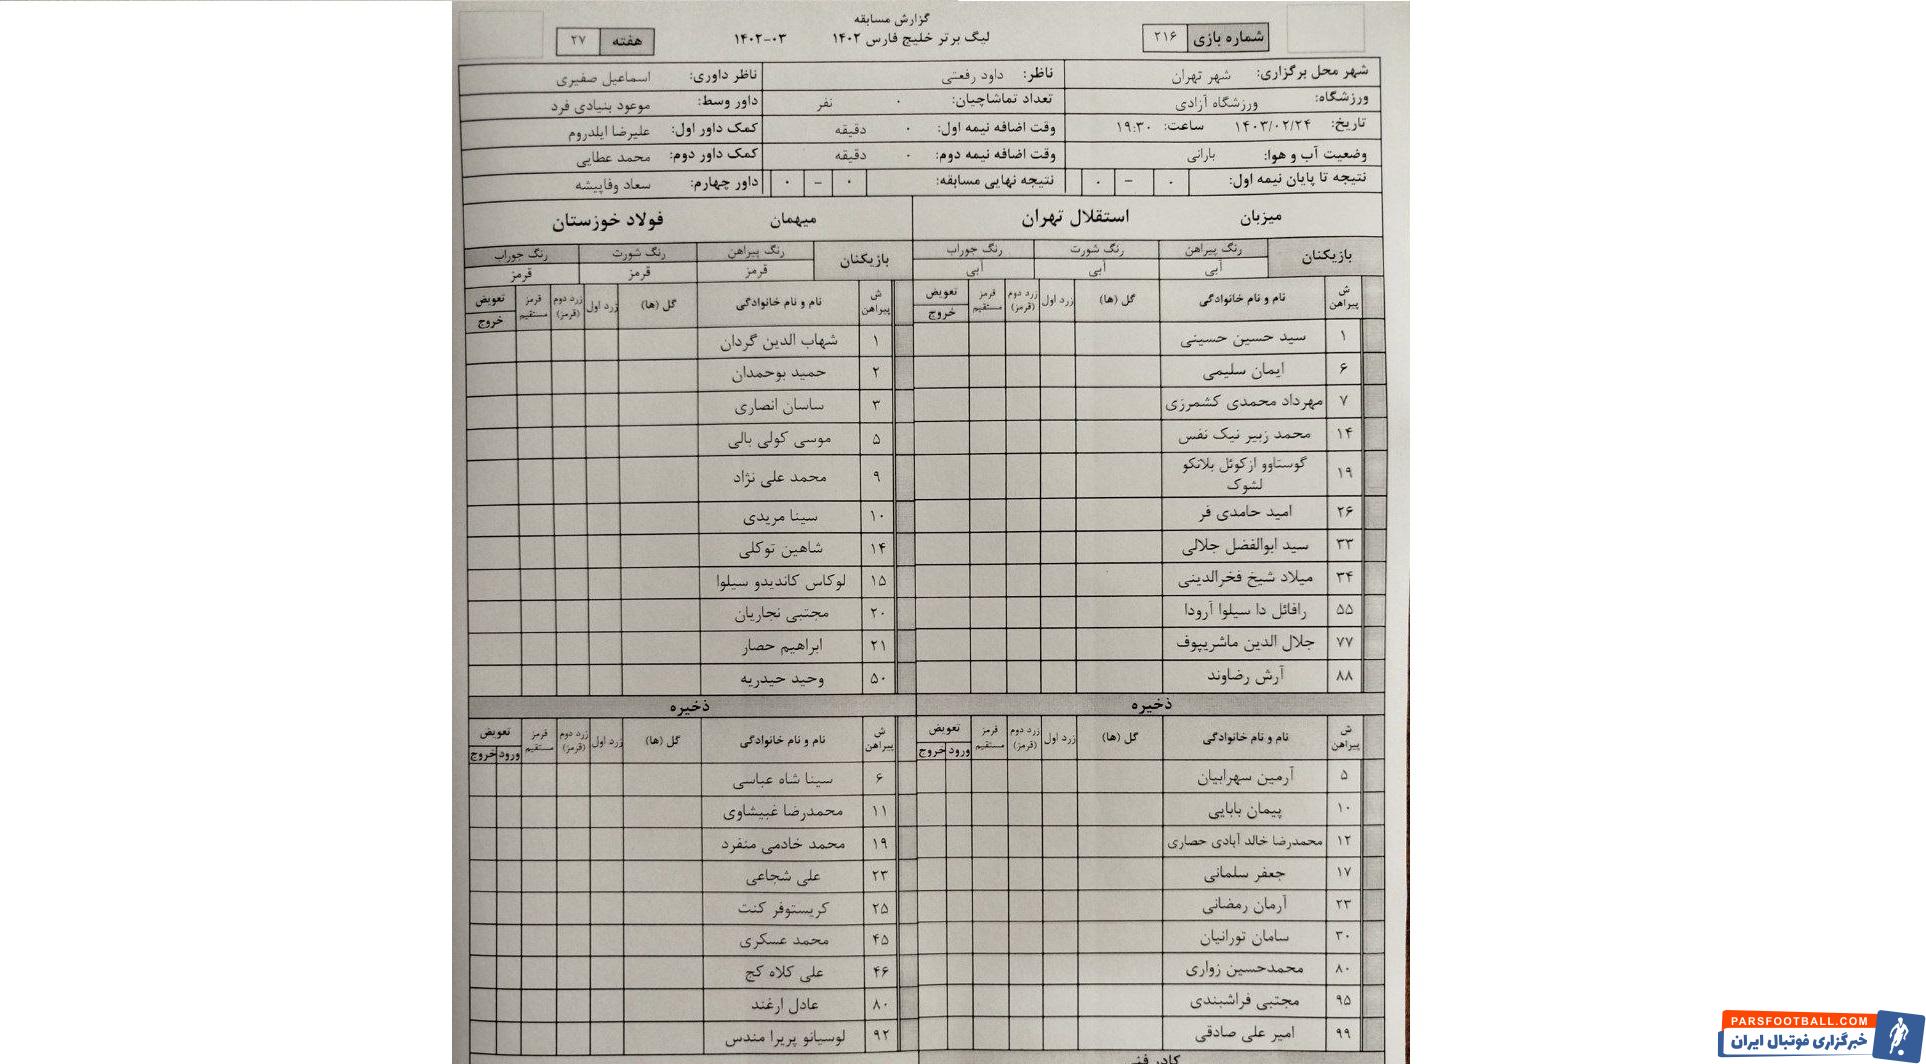 گزارش مسابقه
شماره بازی ۲۱۶ لیگ برتر خلیج فارس ۱۴۰۲ ۱۴۰۲-۰۳ هفته ۲۷
شهر محل برگزاری: شهر تهران ناظر: داود رفعتی ناظر داوری: اسماعیل صفیری
ورزشگاه: ورزشگاه آزادی تعداد تماشاچیان: ۰ نفر داور وسط: موعود بنیادی فرد
تاریخ: ۱۴۰۳/۰۲/۲۴ ساعت: ۱۹:۳۰ وقت اضافه نیمه اول: ۰ دقیقه کمک داور اول: علیرضا ایلدروم
وضعیت آب و هوا: بارانی وقت اضافه نیمه دوم: ۰ دقیقه کمک داور دوم: محمد عطایی
نتیجه تا پایان نیمه اول: ۰ – ۰ نتیجه نهایی مسابقه: ۰ – ۰ داور چهارم: سعاد وفاپیشه
میزبان استقلال تهران میهمان فولاد خوزستان
بازیکنان رنگ پیراهن رنگ شورت رنگ جوراب بازیکنان رنگ پیراهن رنگ شورت رنگ جوراب
آبی آبی آبی قرمز قرمز قرمز
ش پیراهن نام و نام خانوادگی گل (ها) زرد اول زرد دوم (قرمز) قرمز مستقیم تعویض خروج ش پیراهن نام و نام خانوادگی گل (ها) زرد اول زرد دوم (قرمز) قرمز مستقیم تعویض خروج
۱ سید حسین حسینی ۱ شهاب الدین گردان
۶ ایمان سلیمی ۲ حمید بوحمدان
۷ مهرداد محمدی کشمرزی ۳ ساسان انصاری
۱۴ محمد زبیر نیک نفس ۵ موسی کولی بالی
۱۹ گوستاوو ازکوئل بلانکو لشوک ۹ محمد علی نژاد
۲۶ امید حامدی فر ۱۰ سینا مریدی
۳۳ سید ابوالفضل جلالی ۱۴ شاهین توکلی
۳۴ میلاد شیخ فخرالدینی ۱۵ لوکاس کاندیدو سیلوا
۵۵ رافائل دا سیلوا آرودا ۲۰ مجتبی نجاریان
۷۷ جلال الدین ماشریپوف ۲۱ ابراهیم حصار
۸۸ آرش رضاوند ۵۰ وحید حیدریه
ذخیره ذخیره
ش پیراهن نام و نام خانوادگی گل (ها) زرد اول زرد دوم (قرمز) قرمز مستقیم تعویض ورود خروج ش پیراهن نام و نام خانوادگی گل (ها) زرد اول زرد دوم (قرمز) قرمز مستقیم تعویض ورود خروج
۵ آرمین سهرابیان ۶ سینا شاه عباسی
۱۰ پیمان بابایی ۱۱ محمدرضا غبیشاوی
۱۲ محمدرضا خالد آبادی حصاری ۱۹ محمد خادمی منفرد
۱۷ جعفر سلمانی ۲۳ علی شجاعی
۲۳ آرمان رمضانی ۲۵ کریستوفر کنت
۳۰ سامان تورانیان ۴۵ محمد عسکری
۸۰ محمدحسین زواری ۴۶ علی کلاه کج
۹۵ مجتبی فراشبندی ۸۰ عادل ارغند
۹۹ امیر علی صادقی ۹۲ لوسیانو پریرا مندس
کادر فنی
PARSFOOTBALL.COM
خبرگزاری فوتبال ایران